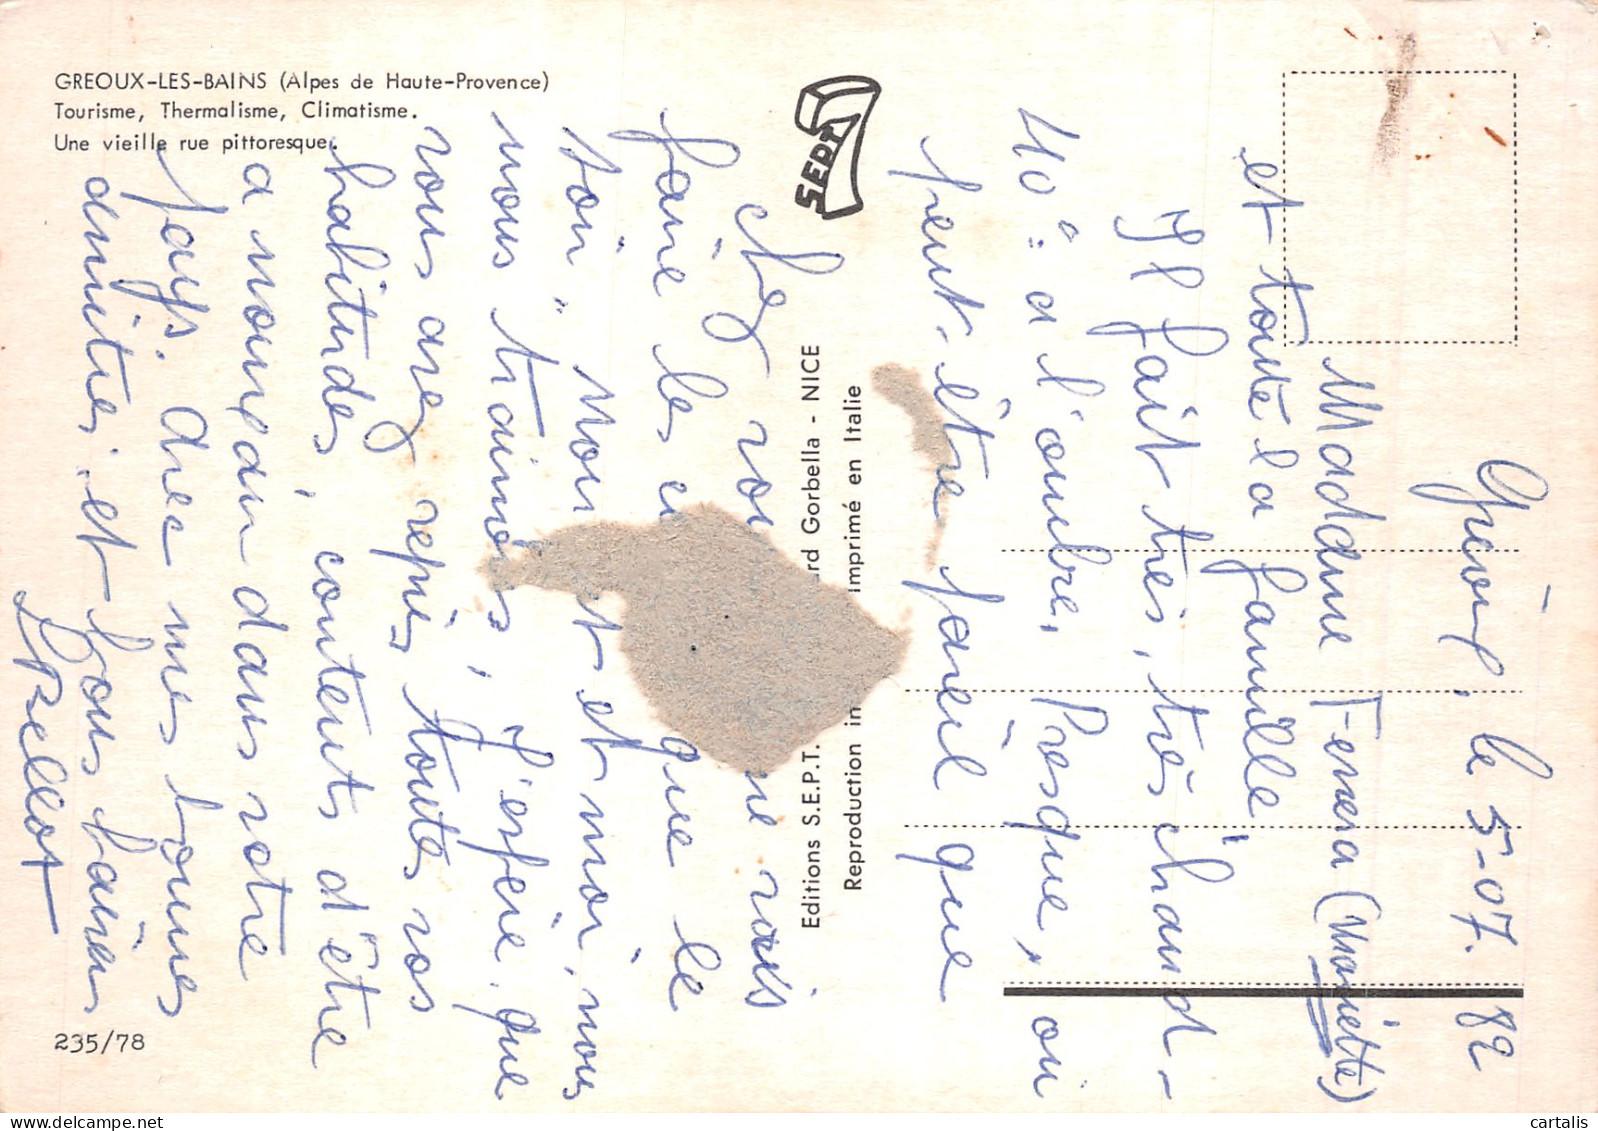 GREOUX-LES-BAINS (Alpes de Haute-Provence)
Tourisme, Thermalisme, Climatisme.
Une vieille rue pittoresque.
SEPT
Editions S.E.P.T. ard Gorbella - NICE
Reproduction in imprimé en Italie
235/78
Gréoux, le 5-07.82
Madame Ferrera (Mariette)
et toute la famille
Il fait très, très chaud -
40° à l'ombre. Presque, ou
peut-être pareil que
chez vous
faire les que le
soir. Mon et moi, nous
nous traînons, J'espère que
vous avez repris toutes vos
habitudes, contents d'être
à nouveau dans votre
pays. Avec mes bonnes
amitiés et gros baisers
cartalis